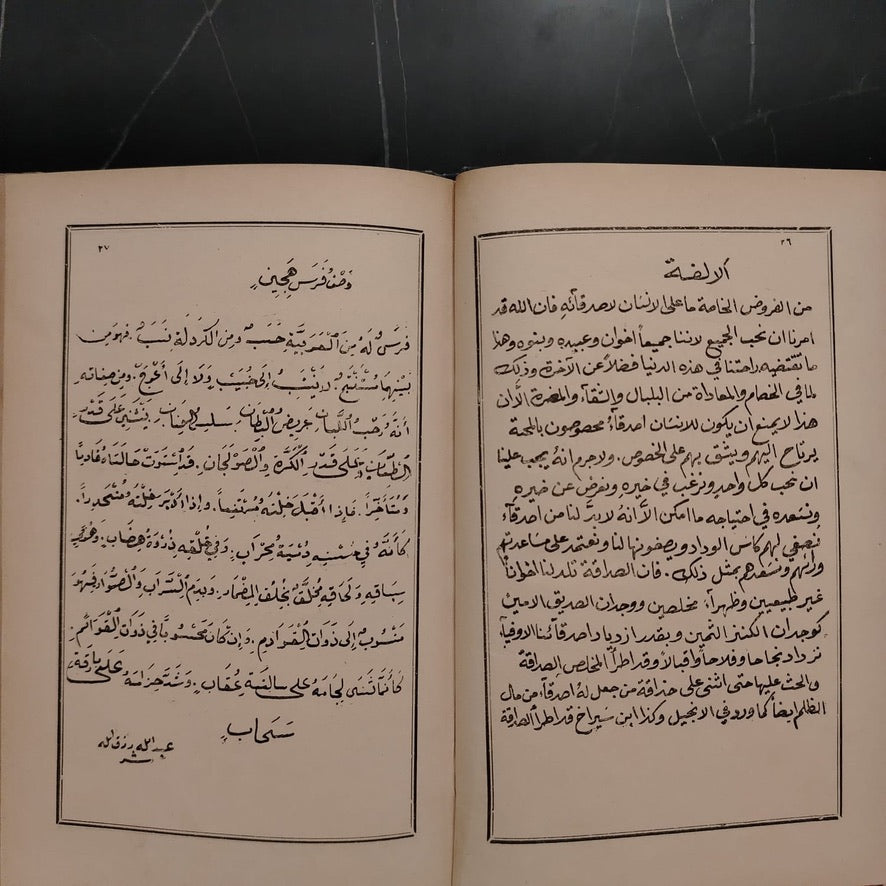 ٢٦
الالفة
من الفروض الخاصة ما على الانسان لاصدقائهِ فان الله قد
امرنا ان نحب الجميع لاننا جميعاً اخوان وعبيده وبنوه وهذا
ما تقتضيه راحتنا في هذه الدنيا فضلاً عن الآخرة وذلك
لما في الخصام والمعاداة من البلبال والشقآء والمضرة الَّا ان
هذا لا يمنع ان يكون للانسان اصدقآءُ مخصوصون بالمحبة
يرتاح اليهم ويثق بهم على الخصوص. ولا جرم انهُ يجب علينا
ان نحب كل واحد ونرغب في خيره ونعرض عن ضيره
ونسعده في احتياجه ما امكن الَّا انهُ لا بدَّ لنا من اصدقآء
نصفي لهم كاس الوداد ويصفونها لنا ونعتمد على مساعدتهم
ورائهم ونسعدهم بمثل ذلك. فان الصداقة تلد لنا اخواناً
غير طبيعيين وظهرآءَ مخلصين ووجدان الصديق الامين
كوجدان الكنز الثمين وبقدر ازدياد اصدقآئنا الاوفيآء
نزداد نجاحا وفلاحا واقبالاً وقد اطرأ المخلص الصداقة
والحث عليها حتى اثنى على حذاقة من جعل له اصدقآء من مال
الظلم ايضاً كما ورد في الانجيل وكذا ابن سيراخ قد اطرأ الصداقة
٢٧
وَصْفُ فَرَسٍ هَجِينٍ
فَرَسٌ لَهُ مِنَ الْعَرَبِيَّةِ حَسَبٌ وَمِنَ الكَرْدَلَةِ نَسَبٌ. فَهُوَ مِنْ
بَيْنِهِمَا مُسْتَنْتَجٌ. لَا يُنْسَبُ إِلَى خُبَيْبٍ وَلَا إِلَى أَعْوَجَ. وَمِنْ صِفَاتِهِ
أَنَّهُ رَحْبُ اللَّبَانِ عَرِيضُ الْبِطَانِ سَلِسُ الْعِنَانِ. يَنْثَنِي عَلَى قَدْرِ
الطِّعَانِ. وَعَلَى قَدْرِ الْكُرَةِ وَالصَّوْلَجَانِ. قَدِ اسْتَوَتْ حَالَتَاهُ قَادِماً
وَمُتَأَخِّراً. فَإِذَا أَقْبَلَ خِلْتَهُ مُرْتَفِعاً. وَإِذَا أَدْبَرَ خِلْتَهُ مُنْحَدِراً.
كَأَنَّهُ فِي حُسْنِهِ دُمْيَةُ مِحْرَابٍ. وَفِي خَلْقِهِ ذُرْوَةُ هِضَابٍ. وَهُوَ فِي
سِبَاقِهِ وَلَحَاقِهِ مُخَلَّقٌ بِخَلُوقِ الْمِضْمَارِ. وَبِدَمِ السِّرَابِ وَالصُّوَارِ فَهُوَ
مَنْسُوبٌ إِلَى ذَوَاتِ الْقَوَادِمِ. وَإِنْ كَانَ مَحْسُوباً فِي ذَوَاتِ الْقَوَائِمِ.
كَأَنَّمَا ثُنِيَ لِجَامُهُ عَلَى سَالِفَةِ عُقَابٍ. وَشُدَّ حِزَامُهُ عَلَى بَارِقَةِ
سَحَابٍ
عبد الله رزق الله